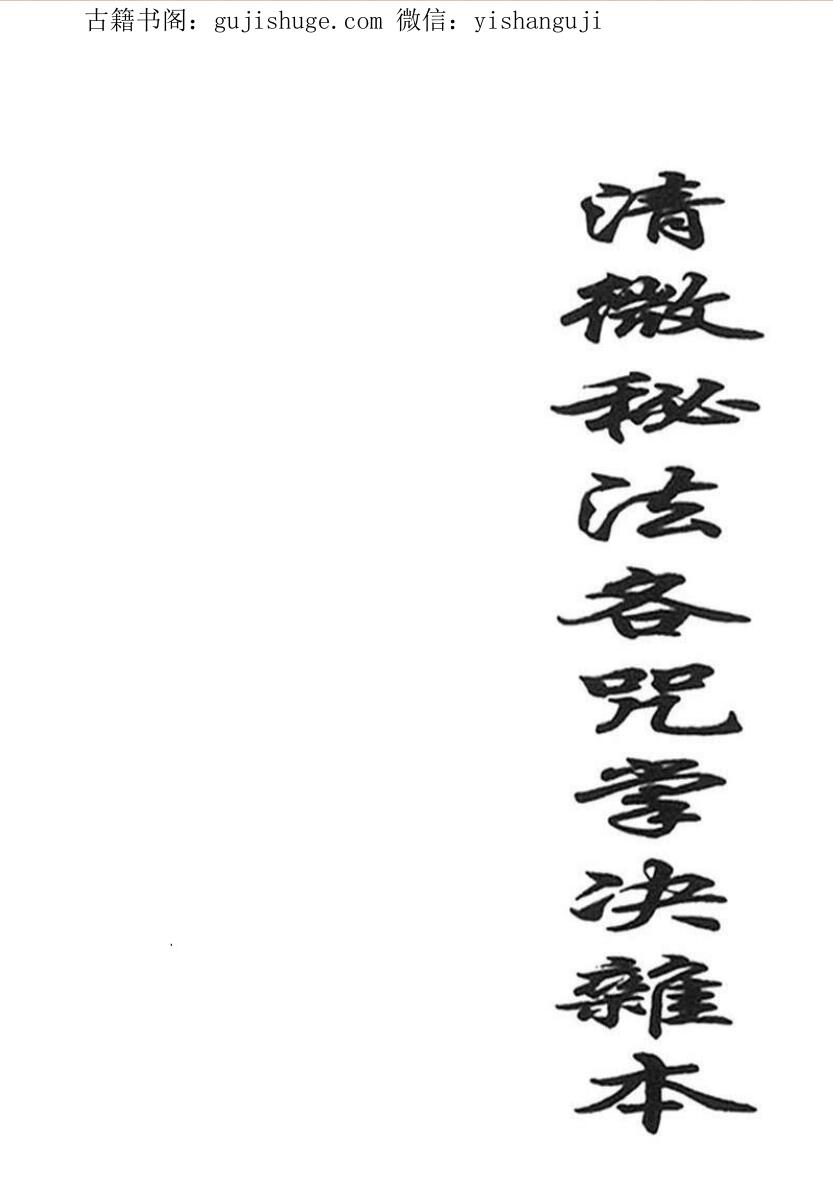 古籍书阁：gujishuge.com 微信：yishanguji
清微秘法各咒掌决雜本